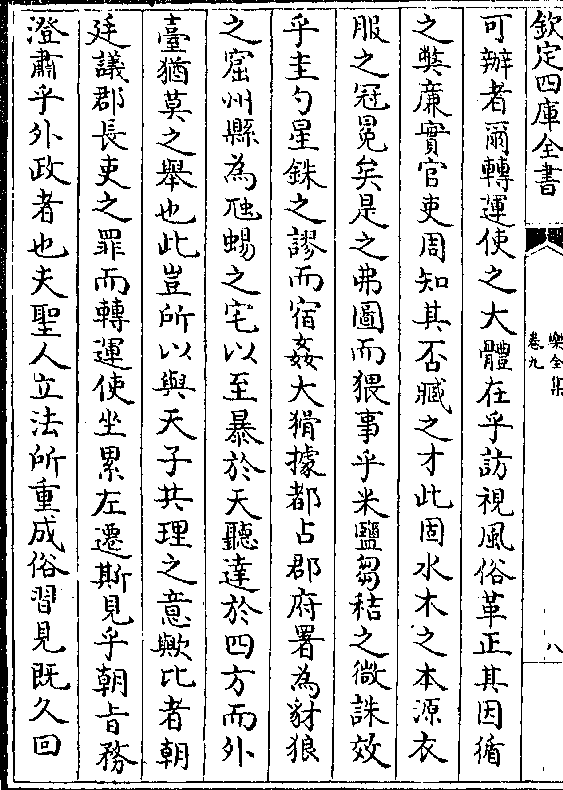 欽定四庫全書
樂全集
卷九
八
可辦者爾轉運使之大體在乎訪視風俗革正其因循
之獘廉實官吏周知其否臧之才此固水木之本源衣
服之冠冕矣是之弗圖而猥事乎米鹽芻秸之微誅效
乎圭勺星銖之謬而宿姦大猾據都占郡府署為豺狼
之窟州縣為虺蜴之宅以至暴於天聽達於四方而外
臺猶莫之舉也此豈所以與天子共理之意歟比者朝
廷議郡長吏之罪而轉運使坐累左遷斯見乎朝㫖務
澄肅乎外政者也夫聖人立法所重成俗習見既久回